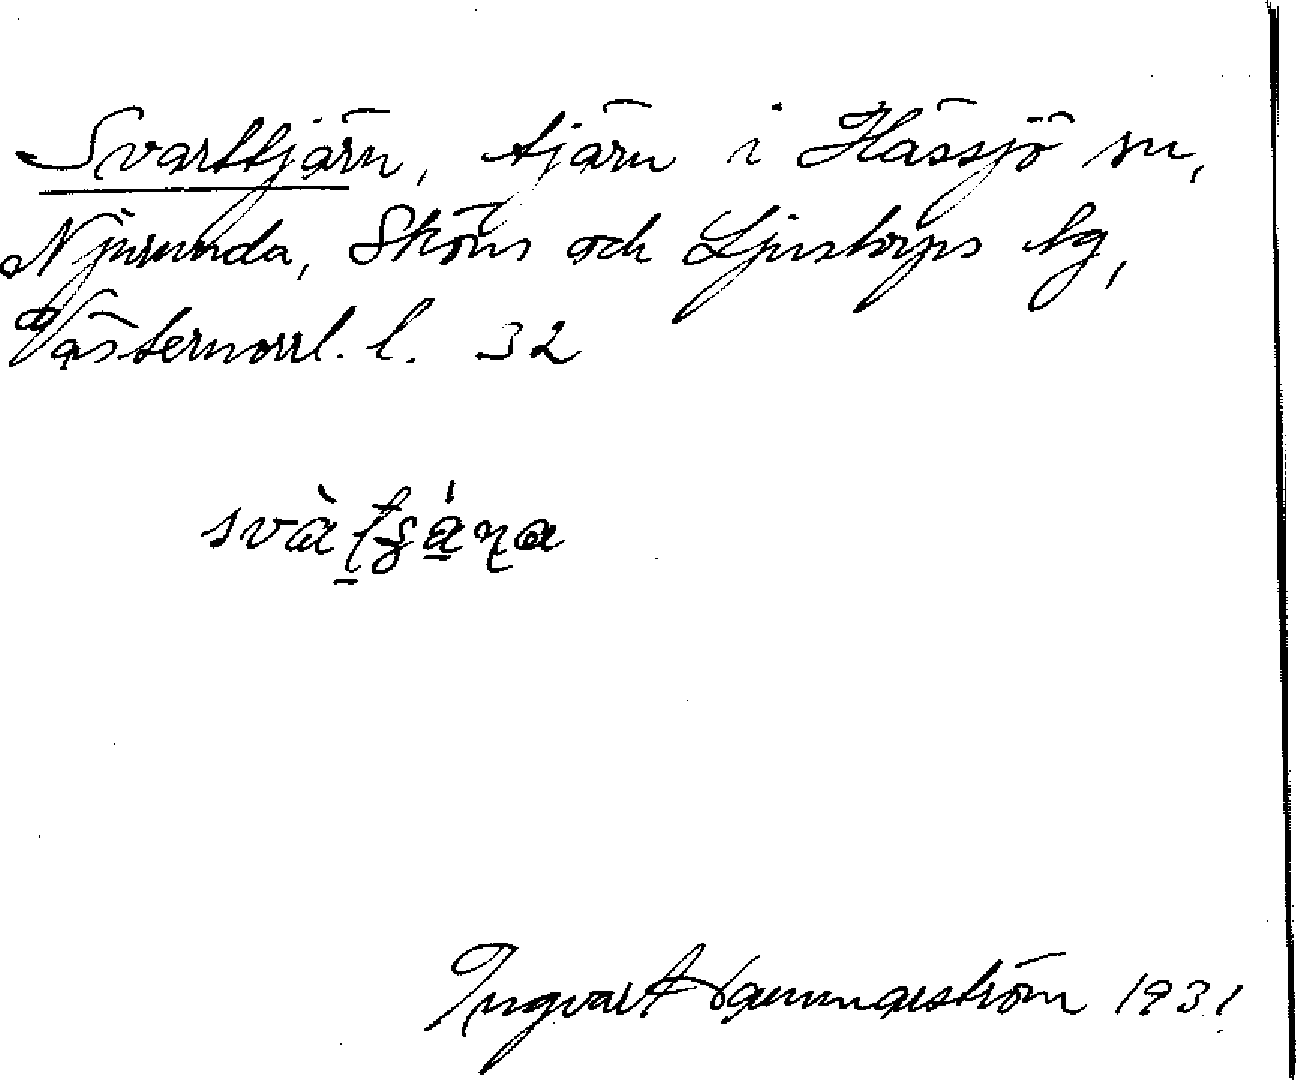 Svarttjärn, tjärn i Hässjö sn,
Njurunda, Sköns och Ljustorps tg,
Västernorrl. l. 32
Ingvar Hammarström 1931